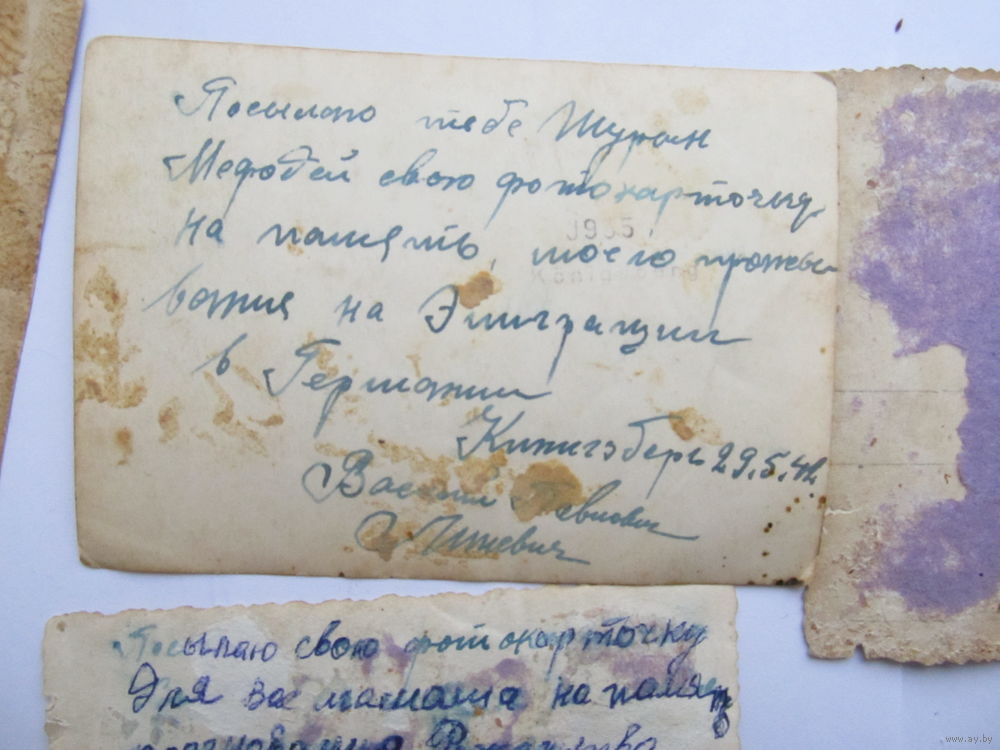 Посылаю тебе Шурын
Мефодей свою фотокарточку
на память, моего прожы
вания на Эмиграции
в Германии
Кинигзберг 29.5.42
Василь
Посылаю свою фотокарточку
Для вас мамаша на память
www.ay.by